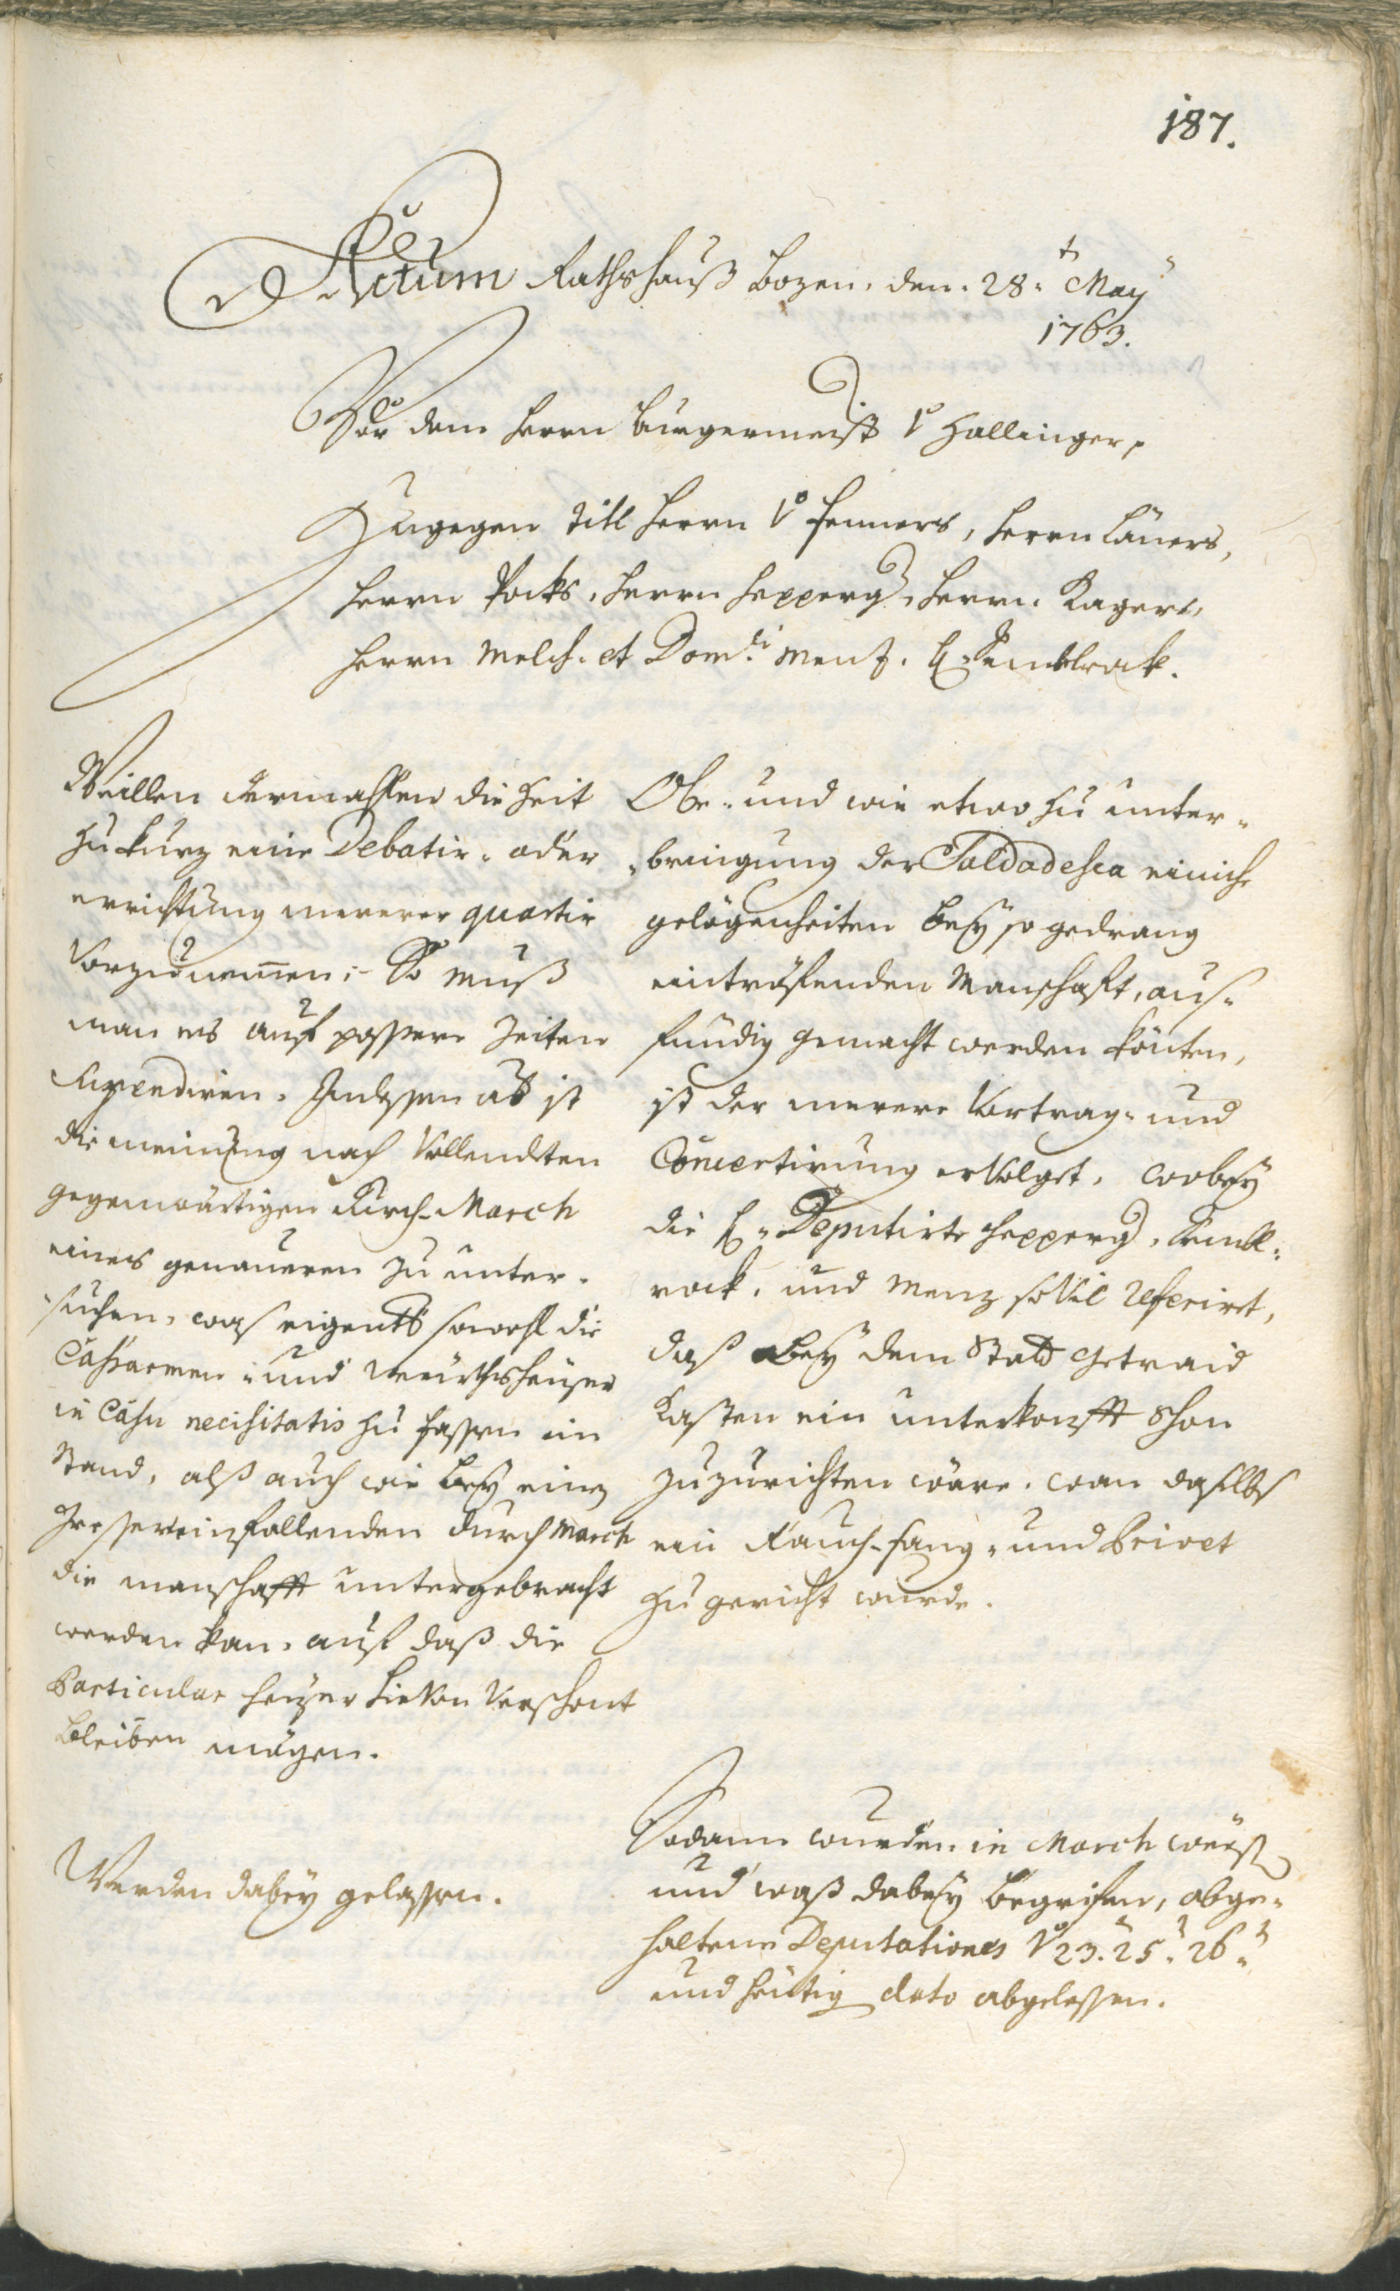 187.
Actum Rathshauß Bozen, den 28t May
1763.
Vor dem Herrn Burgermeistr v Hallinger,
Zugegen Titl Herrn v Fenners, Herrn Läners,
Herrn Pocks, Herrn Hepperg, Herrn Kagerl,
Herrn Melch. et Dom: Menz. H: Knoblrock.
Weillen dermahlen die Zeit
zu kurz eine Debatir- oder
errichtung mererer quartir
Vorzunemen:- So muß
man es auf passere Zeiten
suspendiren. Indessen ab ist
die meinung nach Vollendeten
gegenwärtigen Durch-March
eines genaueren zu unter-
suchen, waß eigentl sowohl die
Cassarmen- und Würthshäuser
in Casu necisitatis zu fassen im
Stand, alß auch wie bey einem
grosser einfallenden Durch March
die manschafft untergebracht
werden kan, auf daß die
Particular heuser hievon Verschont
bleiben mögen.
Werden dabey gelassen.
Obe- und wie etwo zu unter-
bringung der Soldadesca einiche
gelögenheiten bey so gedrang
eintröfenden Manschaft, aus-
findig gemacht werden könten,
ist der merere Vortrag- und
Concertirung ervolget, wobey
die H: Deputirte Hepperg, Knobl-
rock, und Menz so Vil referirt,
daß bey dem Statt Getraid
Kasten ein unterkonfft schon
zuzurichten wäre, wan daselbs
ein Rauch-fang- und Privet
zu gericht wurde.
Sodann wurden in March weeß
und waß dabey begrifen, abge-
haltene Deputationes v 23. 25. 26.
und heutig dato abgelessen.